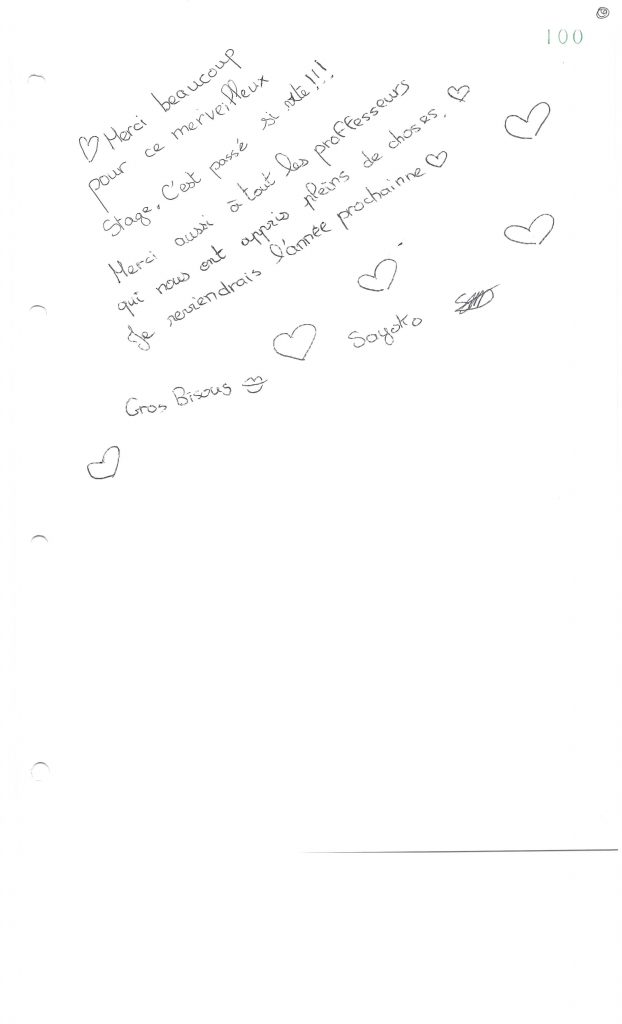 100
♡ Merci beaucoup
pour ce merveilleux
Stage. C'est passé si vite!!!
Merci aussi à tout les proffesseurs
qui nous ont appris pleins de choses. ♡
Je reviendrais l'année prochainne ♡
Sayoko
Gros Bisous